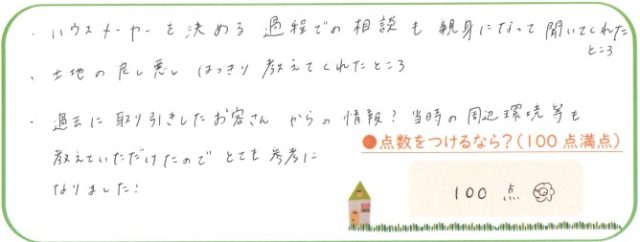 ・ハウスメーカーを決める過程での相談も親身になって聞いてくれた
ところ
・土地の良し悪しはっきり教えてくれたところ
・過去に取り引きしたお客さんからの情報?当時の周辺環境等も
教えていただけたのでとても参考に
なりました!
●点数をつけるなら?(100点満点)
100点